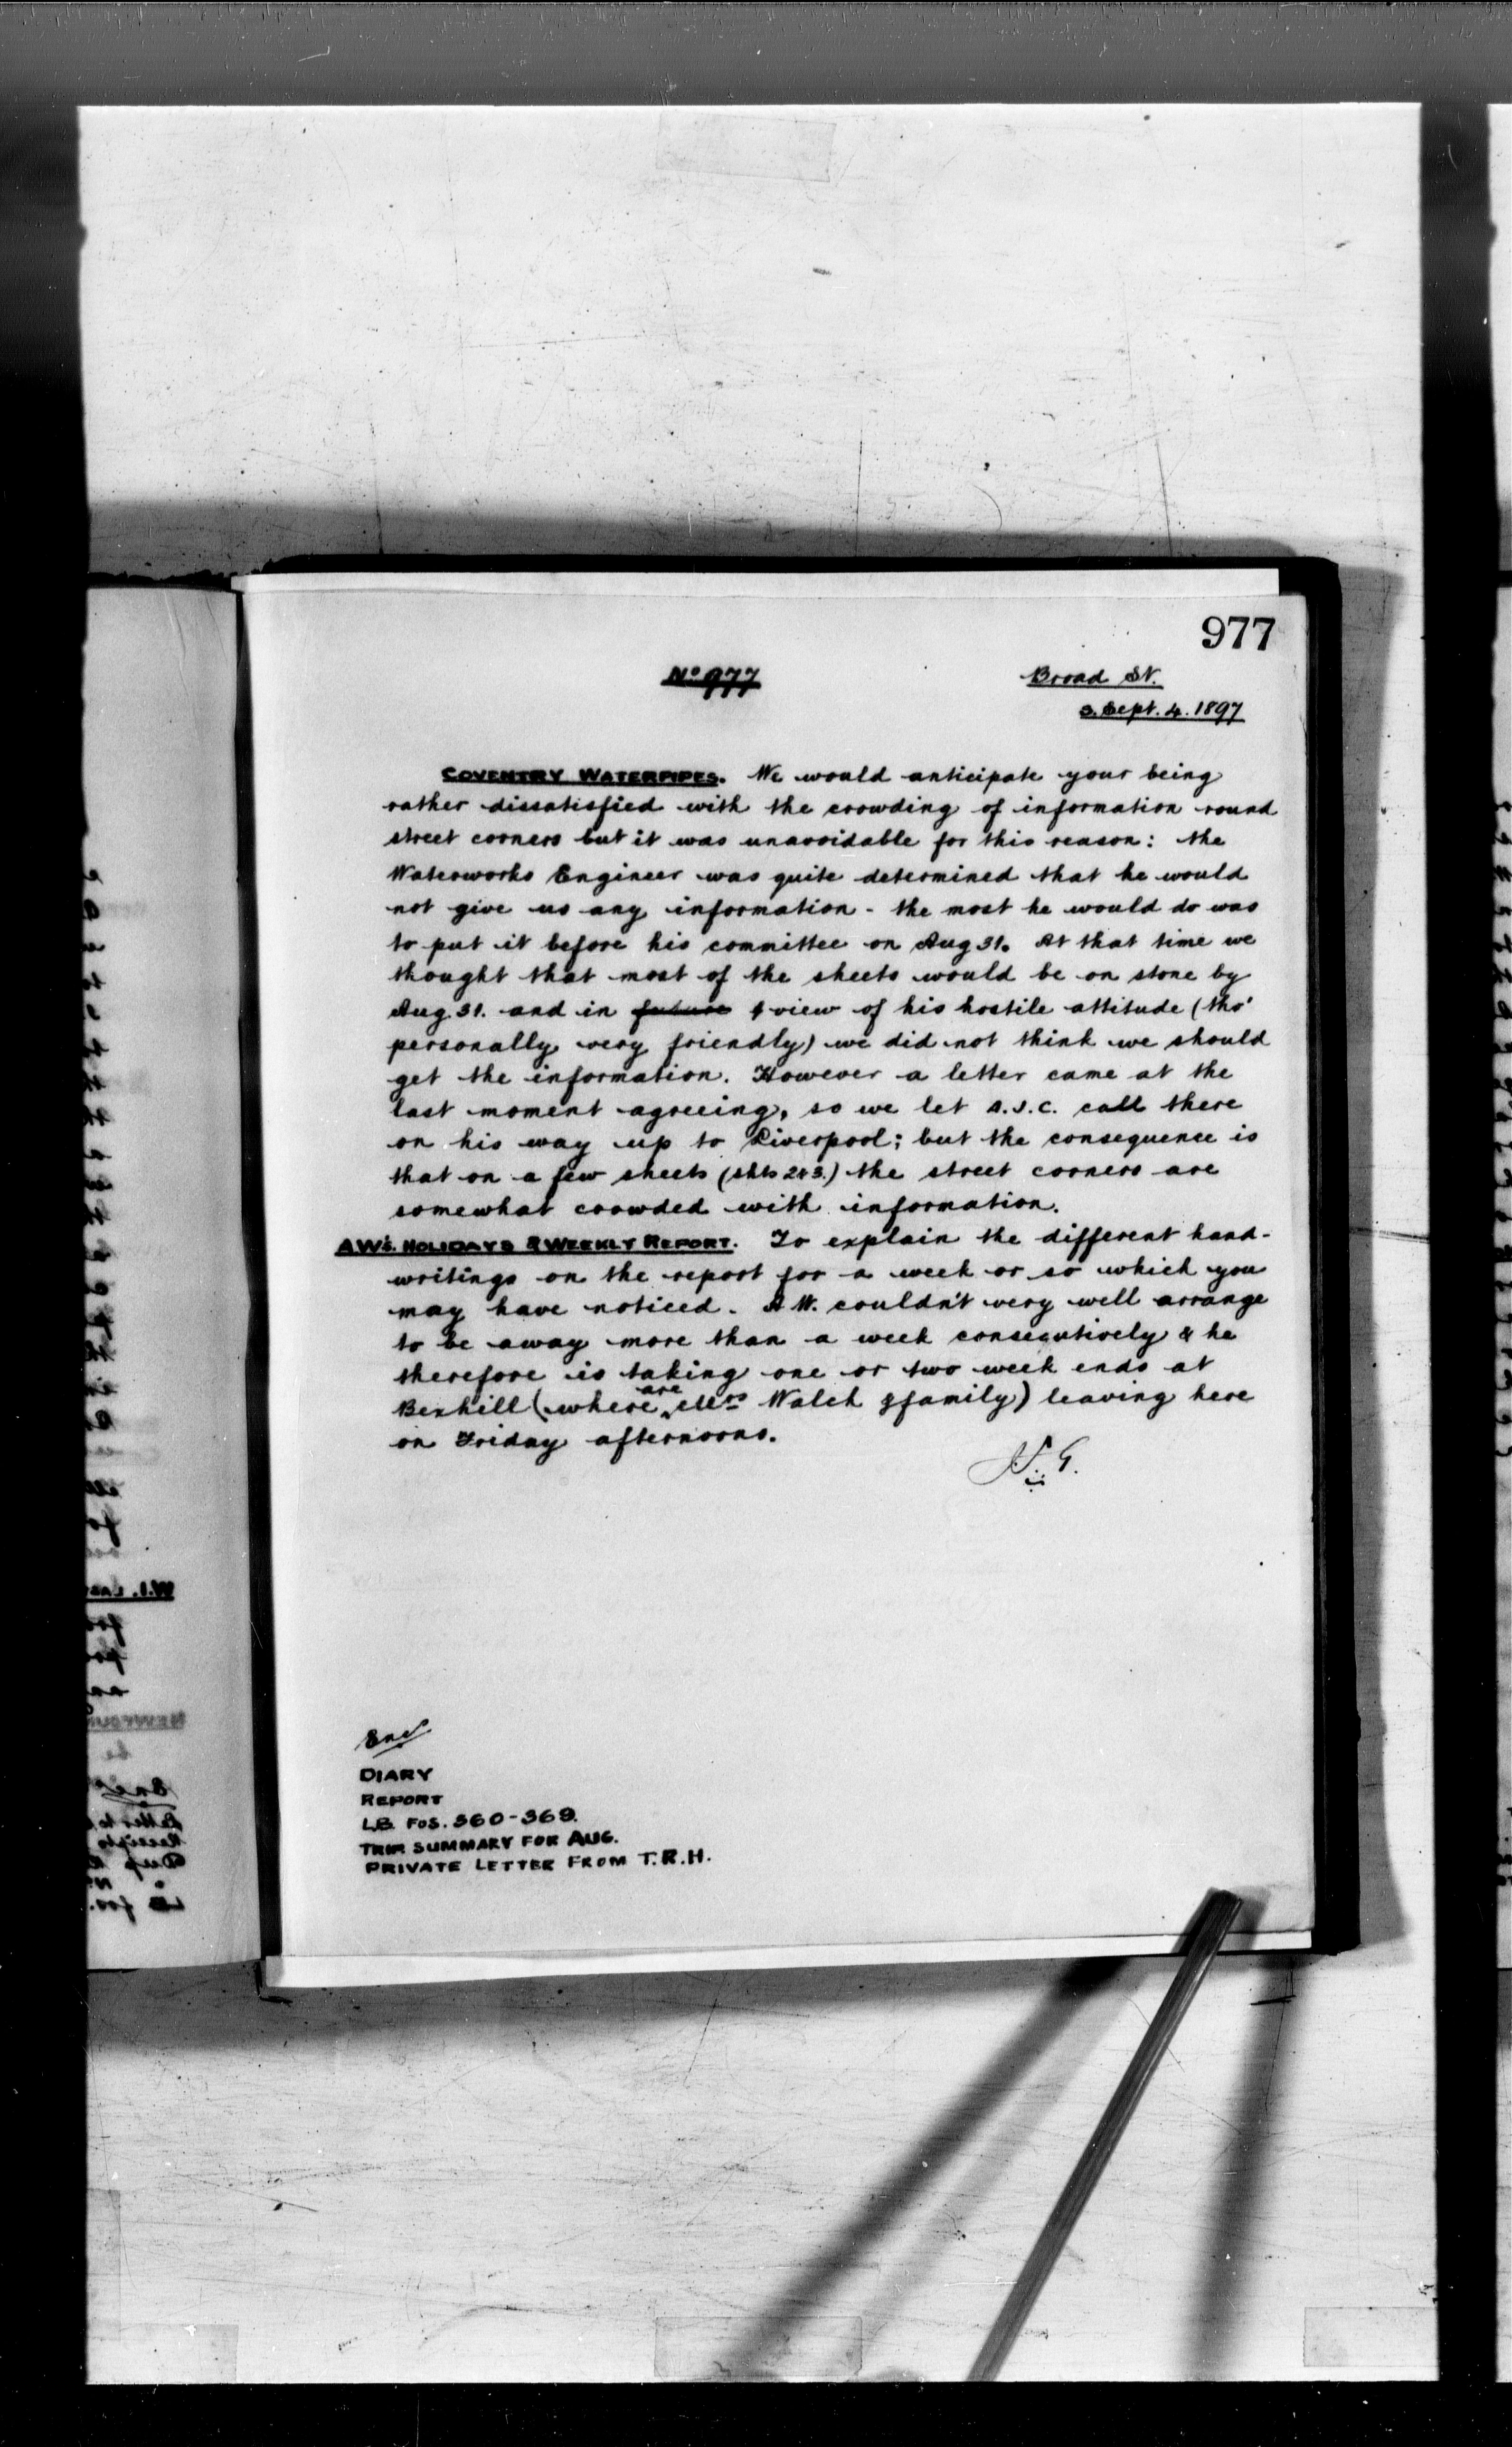 977
No 977
Broad St.
S. Sept. 4. 1897
COVENTRY WATERPIPES. We would anticipate your being
rather dissatisfied with the crowding of information round
street corners but it was unavoidable for this reason: the
Waterworks Engineer was quite determined that he would
not give us any information - the most he would do was
to put it before his committee on Aug 31. At that time we
thought that most of the sheets would be on stone by
Aug. 31. and in future view of his hostile attitude (tho'
personally very friendly) we did not think we should
get the information. However a letter came at the
last moment agreeing, so we let A.J.C. call there
on his way up to Liverpool; but the consequence is
that on a few sheets (shts 2 & 3.) the street corners are
somewhat crowded with information.
AW's. HOLIDAYS & WEEKLY REPORT. To explain the different hand-
writings on the report for a week or so which you
may have noticed. A W. couldn't very well arrange
to be away more than a week consecutively & he
therefore is taking one or two week ends at
Bexhill (where are Mrs Walch & family) leaving here
on Friday afternoons.
Encs
DIARY
REPORT
L.B. FOS. 360-369.
TRIP SUMMARY FOR AUG.
PRIVATE LETTER FROM T.R.H.